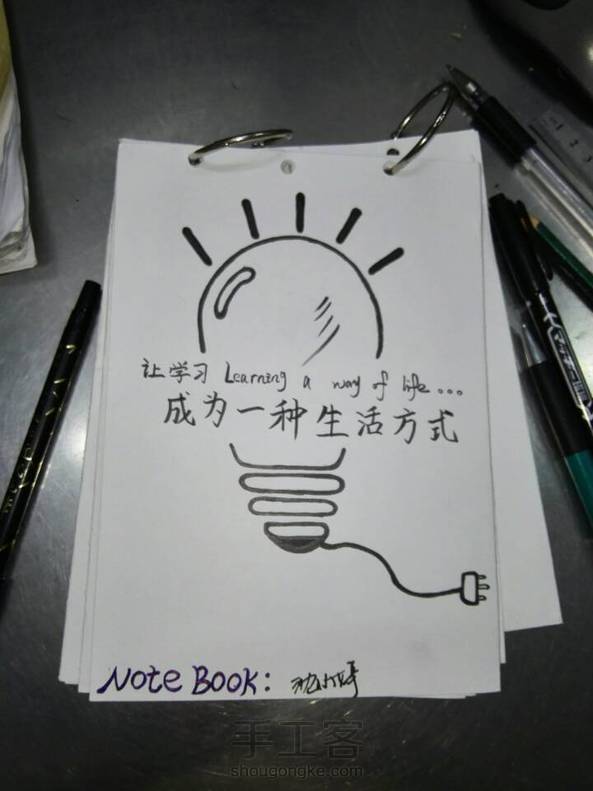 让学习 Learning a way of life...
成为一种生活方式
Note Book:
手工客
shougongke.com